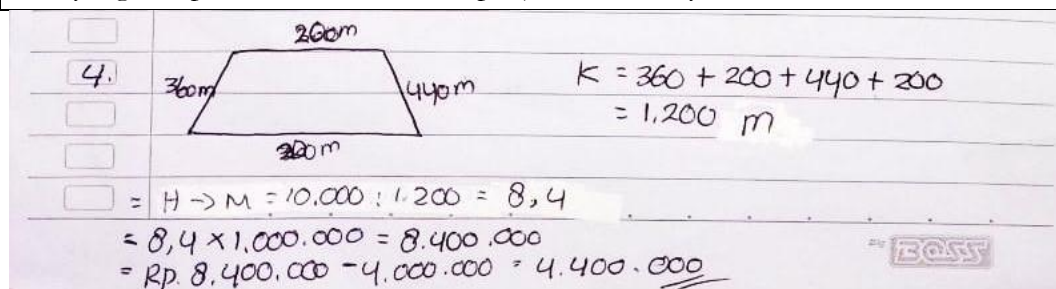 200m
4.
360m
440m
K = 360 + 200 + 440 + 200
= 1.200 m
200m
= H -> M = 10.000 : 1.200 = 8,4
= 8,4 x 1.000.000 = 8.400.000
= Rp. 8.400.000 - 4.000.000 = 4.400.000
BOSS